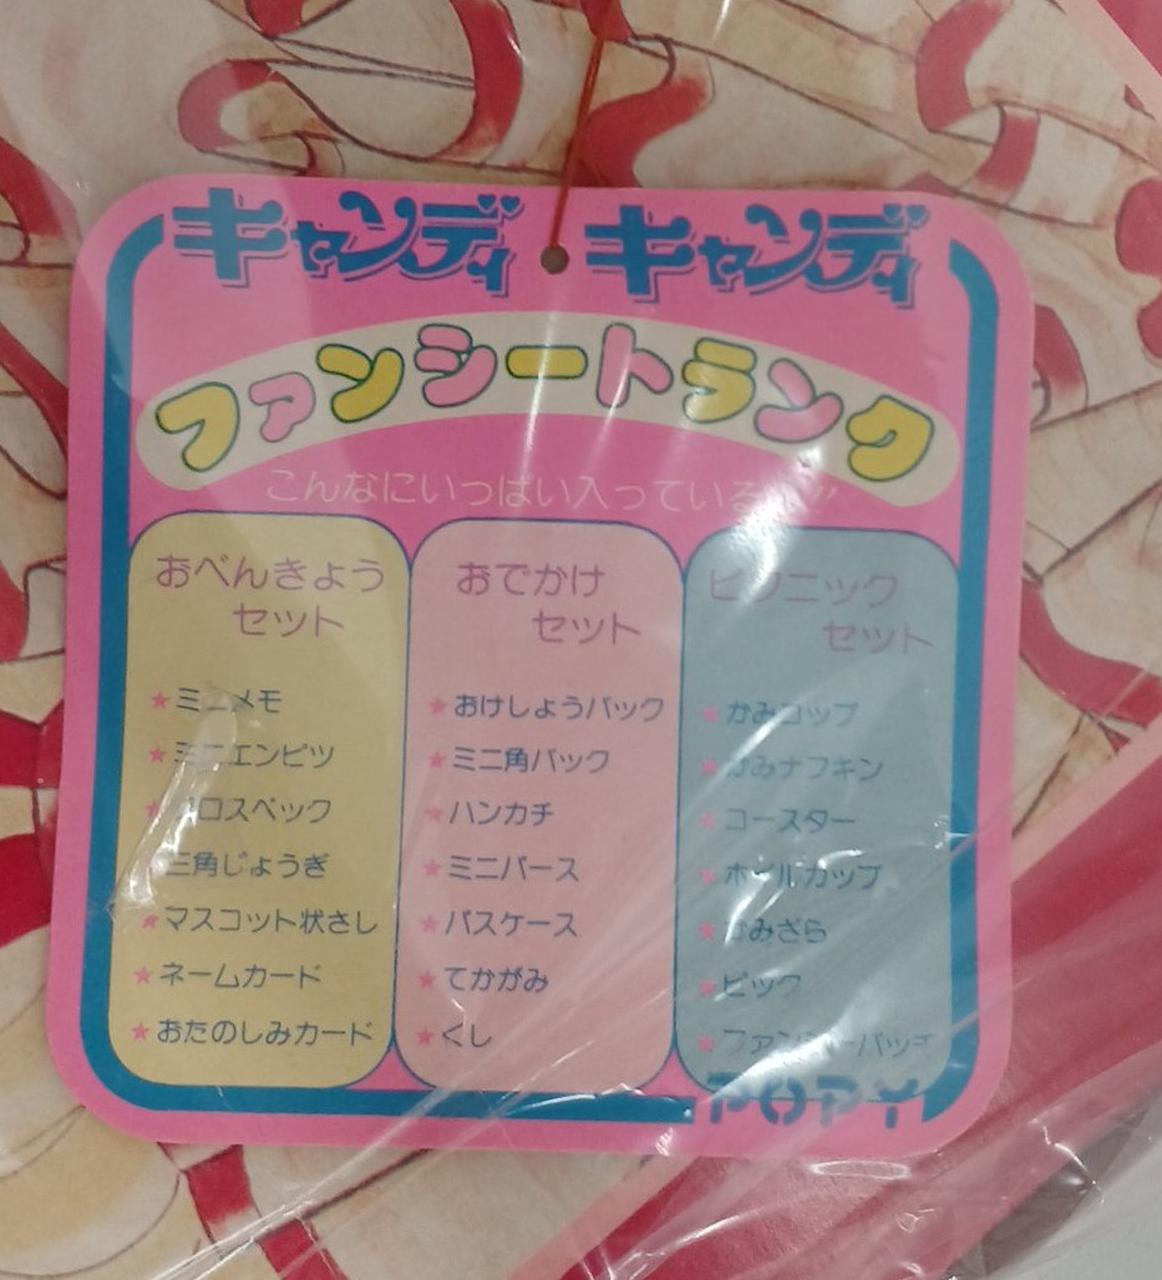 キャンディ・キャンディ
ファンシートランク
こんなにいっぱい入っている
おべんきょう
セット
★ミニメモ
★ミニエンピツ
スペック
三角じょうぎ
★マスコット状さし
★ネームカード
★おたのしみカード
おでかけ
セット
★おけしょうバック
★ミニ角バック
★ハンカチ
★ミニパース
★パスケース
★てかがみ
★くし
ピクニック
セット
★かみコップ
★かみナフキン
★コースター
★ホイルカップ
★かみざら
★ピック
★ファンシーバッチ
POPY